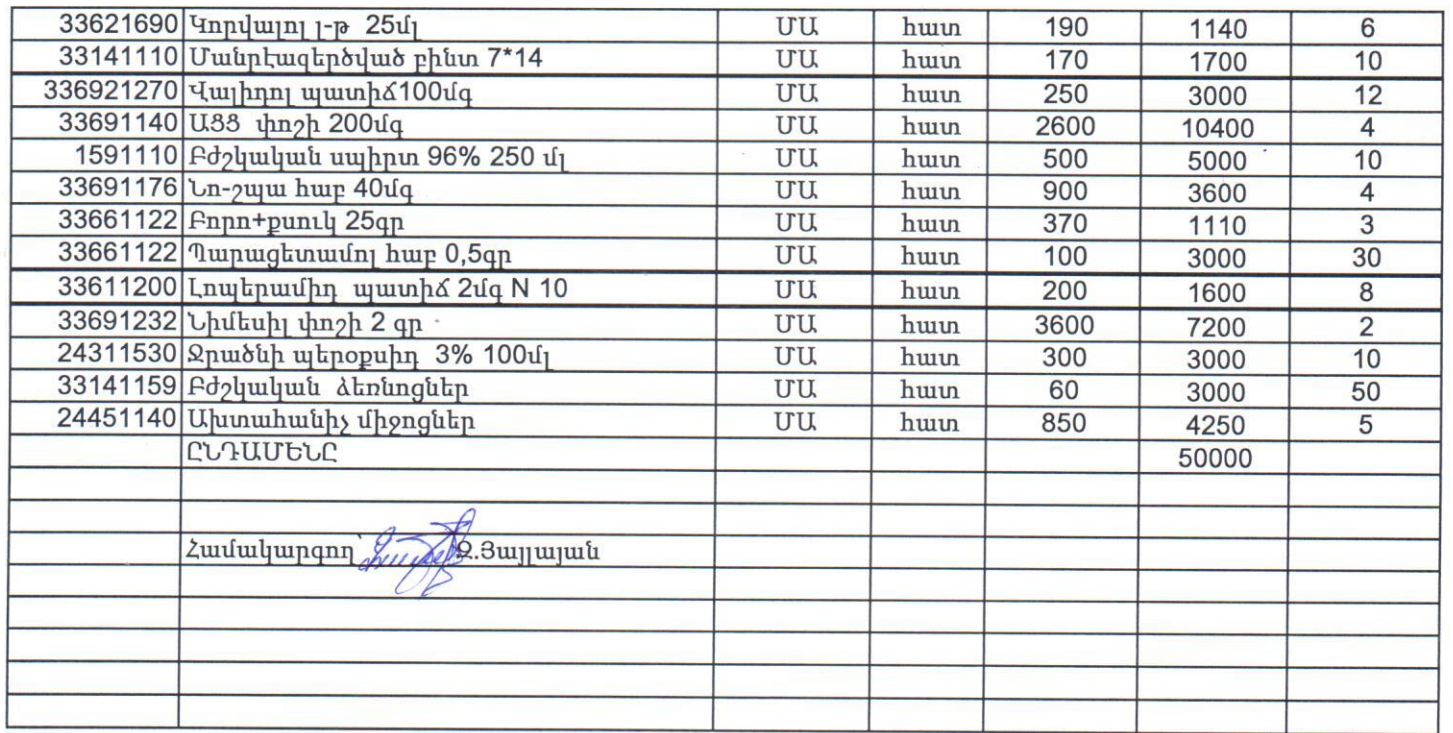 33621690 Կորվալոլ լ-թ 25մլ ՄԱ հատ 190 1140 6
33141110 Մանրէազերծված բինտ 7*14 ՄԱ հատ 170 1700 10
336921270 Վալիդոլ պատիճ100մգ ՄԱ հատ 250 3000 12
33691140 ԱՑՑ փոշի 200մգ ՄԱ հատ 2600 10400 4
1591110 Բժշկական սպիրտ 96% 250 մլ ՄԱ հատ 500 5000 10
33691176 Նո-շպա հաբ 40մգ ՄԱ հատ 900 3600 4
33661122 Բորո+քսուկ 25գր ՄԱ հատ 370 1110 3
33661122 Պարացետամոլ հաբ 0,5գր ՄԱ հատ 100 3000 30
33611200 Լոպերամիդ պատիճ 2մգ N 10 ՄԱ հատ 200 1600 8
33691232 Նիմեսիլ փոշի 2 գր ՄԱ հատ 3600 7200 2
24311530 Ջրածնի պերօքսիդ 3% 100մլ ՄԱ հատ 300 3000 10
33141159 Բժշկական ձեռնոցներ ՄԱ հատ 60 3000 50
24451140 Ախտահանիչ միջոցներ ՄԱ հատ 850 4250 5
ԸՆԴԱՄԵՆԸ 50000
Համակարգող՝ Ձ.Յայլայան